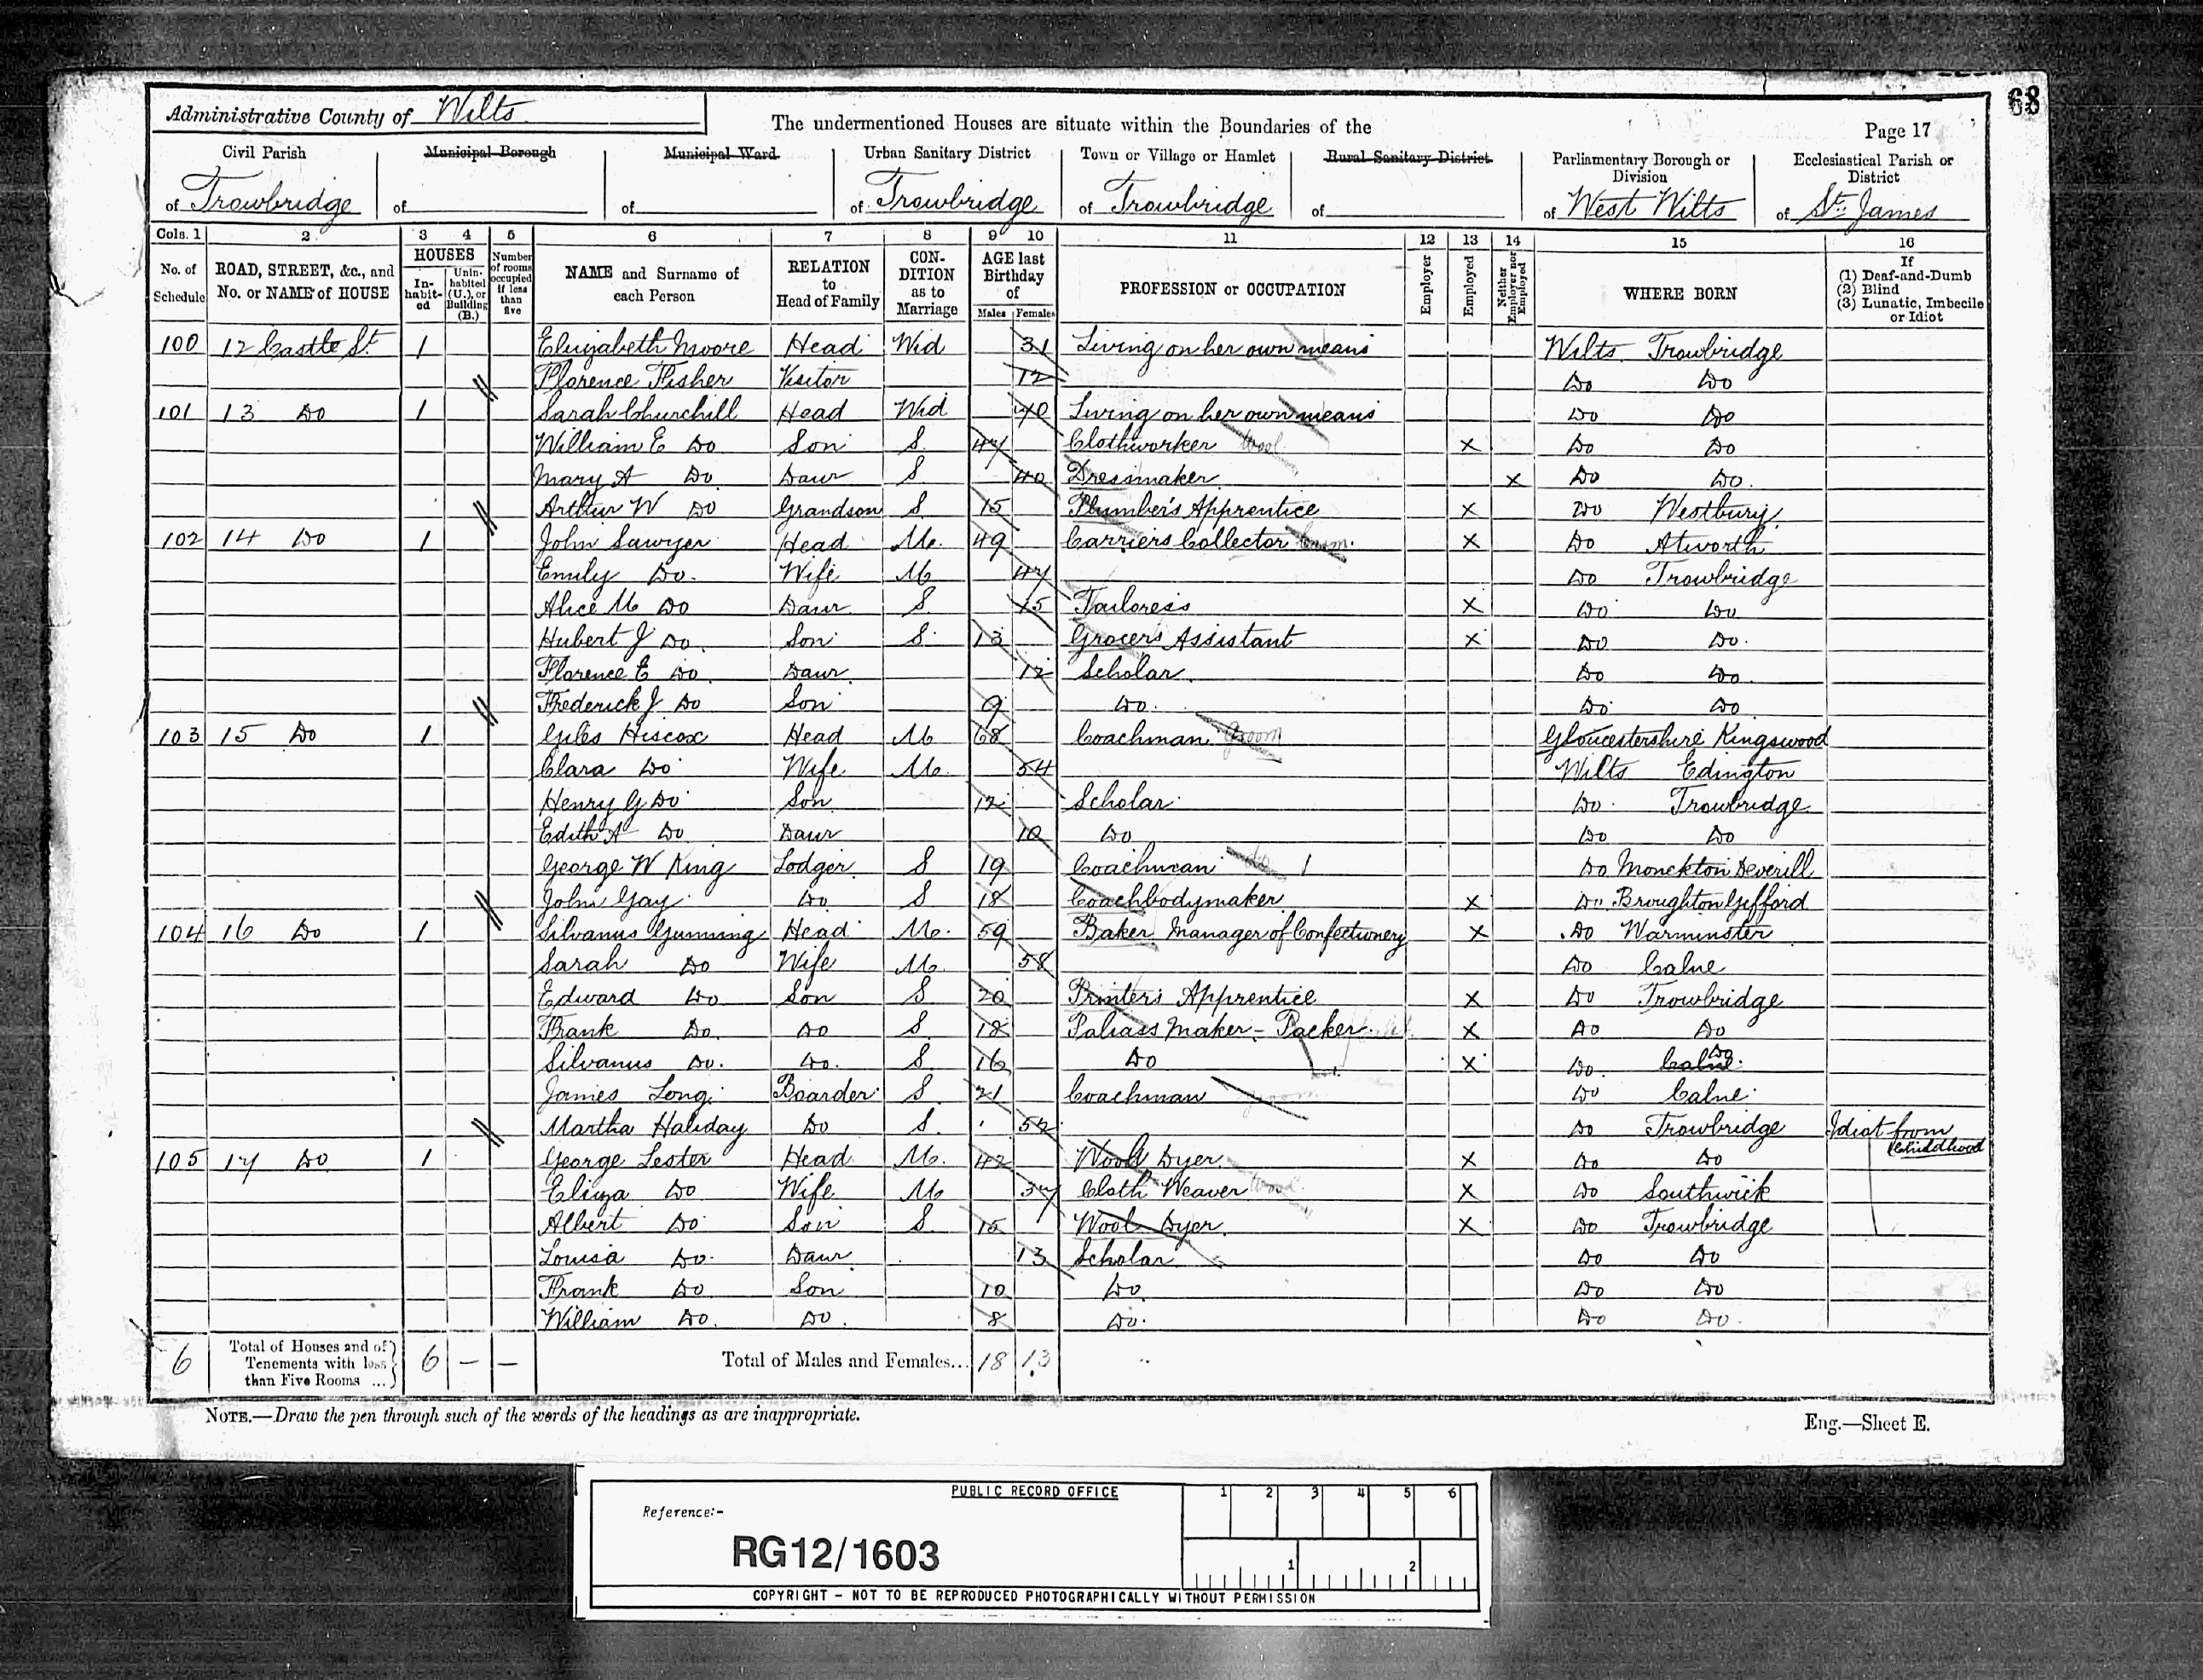 68
Administrative County of Wilts
The undermentioned Houses are situate within the Boundaries of the
Page 17
Civil Parish of Trowbridge
Municipal Borough of
Municipal Ward of
Urban Sanitary District of Trowbridge
Town or Village or Hamlet of Trowbridge
Rural Sanitary District of
Parliamentary Borough or Division of West Wilts
Ecclesiastical Parish or District of St. James
Cols. 1 2 3 4 5 6 7 8 9 10 11 12 13 14 15 16
No. of Schedule
ROAD, STREET, &c., and No. or NAME of HOUSE
HOUSES
Inhabited
Uninhabited (U.), or Building (B.)
Number of rooms occupied if less than five
NAME and Surname of each Person
RELATION to Head of Family
CONDITION as to Marriage
AGE last Birthday of
Males Females
PROFESSION or OCCUPATION
Employer
Employed
Neither Employer nor Employed
WHERE BORN
If (1) Deaf-and-Dumb (2) Blind (3) Lunatic, Imbecile or Idiot
100 12 Castle St. 1 Elizabeth Moore Head Wid 31 Living on her own means Wilts Trowbridge
Florence Fisher Visitor 12 Do Do
101 13 Do 1 Sarah Churchill Head Wid 70 Living on her own means Do Do
William E Do Son S. 47 Clothworker Wool X Do Do
Mary A Do Daur S 40 Dressmaker X Do Do.
Arthur W Do Grandson S. 15 Plumber's Apprentice X Do Westbury
102 14 Do 1 John Sawyer Head M. 49 Carriers Collector X Do Atworth
Emily Do. Wife M 47 Do Trowbridge
Alice M Do Daur S. 15 Tailoress X Do Do
Hubert J Do. Son S. 13 Grocers Assistant X Do Do.
Florence E Do. Daur. 12 Scholar. Do Do.
Frederick J Do Son 9 Do. Do Do
103 15 Do 1 Giles Hiscox Head M 68 Coachman Groom Gloucestershire Kingswood
Clara Do Wife M. 54 Wilts Edington
Henry G Do Son 12 Scholar Do. Trowbridge
Edith A Do Daur 10 Do Do Do
George W King Lodger S 19 Coachman 1 Do Monckton Deverill
John Gay Do S 18 Coachbodymaker X Do Broughton Gifford
104 16 Do 1 Silvanus Gunning Head M. 59 Baker Manager of Confectionery X Do Warminster
Sarah Do Wife M. 58 Do Calne
Edward Do Son S 20 Printers Apprentice X Do Trowbridge
Frank Do. Do S. 18 Paliass Maker - Packer X Do Do
Silvanus Do. Do. S. 16 Do X Do. Calne Do
James Long Boarder S. 21 Coachman groom Do Calne
Martha Haliday Do S. 52 Do Trowbridge Idiot from Childhood
105 17 Do 1 George Lester Head M. 42 Wool Dyer X Do Do
Eliza Do Wife M 37 Cloth Weaver Wool X Do Southwick
Albert Do Son S. 15 Wool Dyer X Do Trowbridge
Louisa Do. Daur 13 Scholar Do Do
Frank Do Son 10 Do. Do Do
William Do. Do. 8 Do. Do Do.
6 Total of Houses and of Tenements with less than Five Rooms ... 6 — — Total of Males and Females... 18 13
NOTE.—Draw the pen through such of the words of the headings as are inappropriate.
Eng.—Sheet E.
PUBLIC RECORD OFFICE
1 2 3 4 5 6
Reference:-
RG12/1603
1 2
COPYRIGHT - NOT TO BE REPRODUCED PHOTOGRAPHICALLY WITHOUT PERMISSION